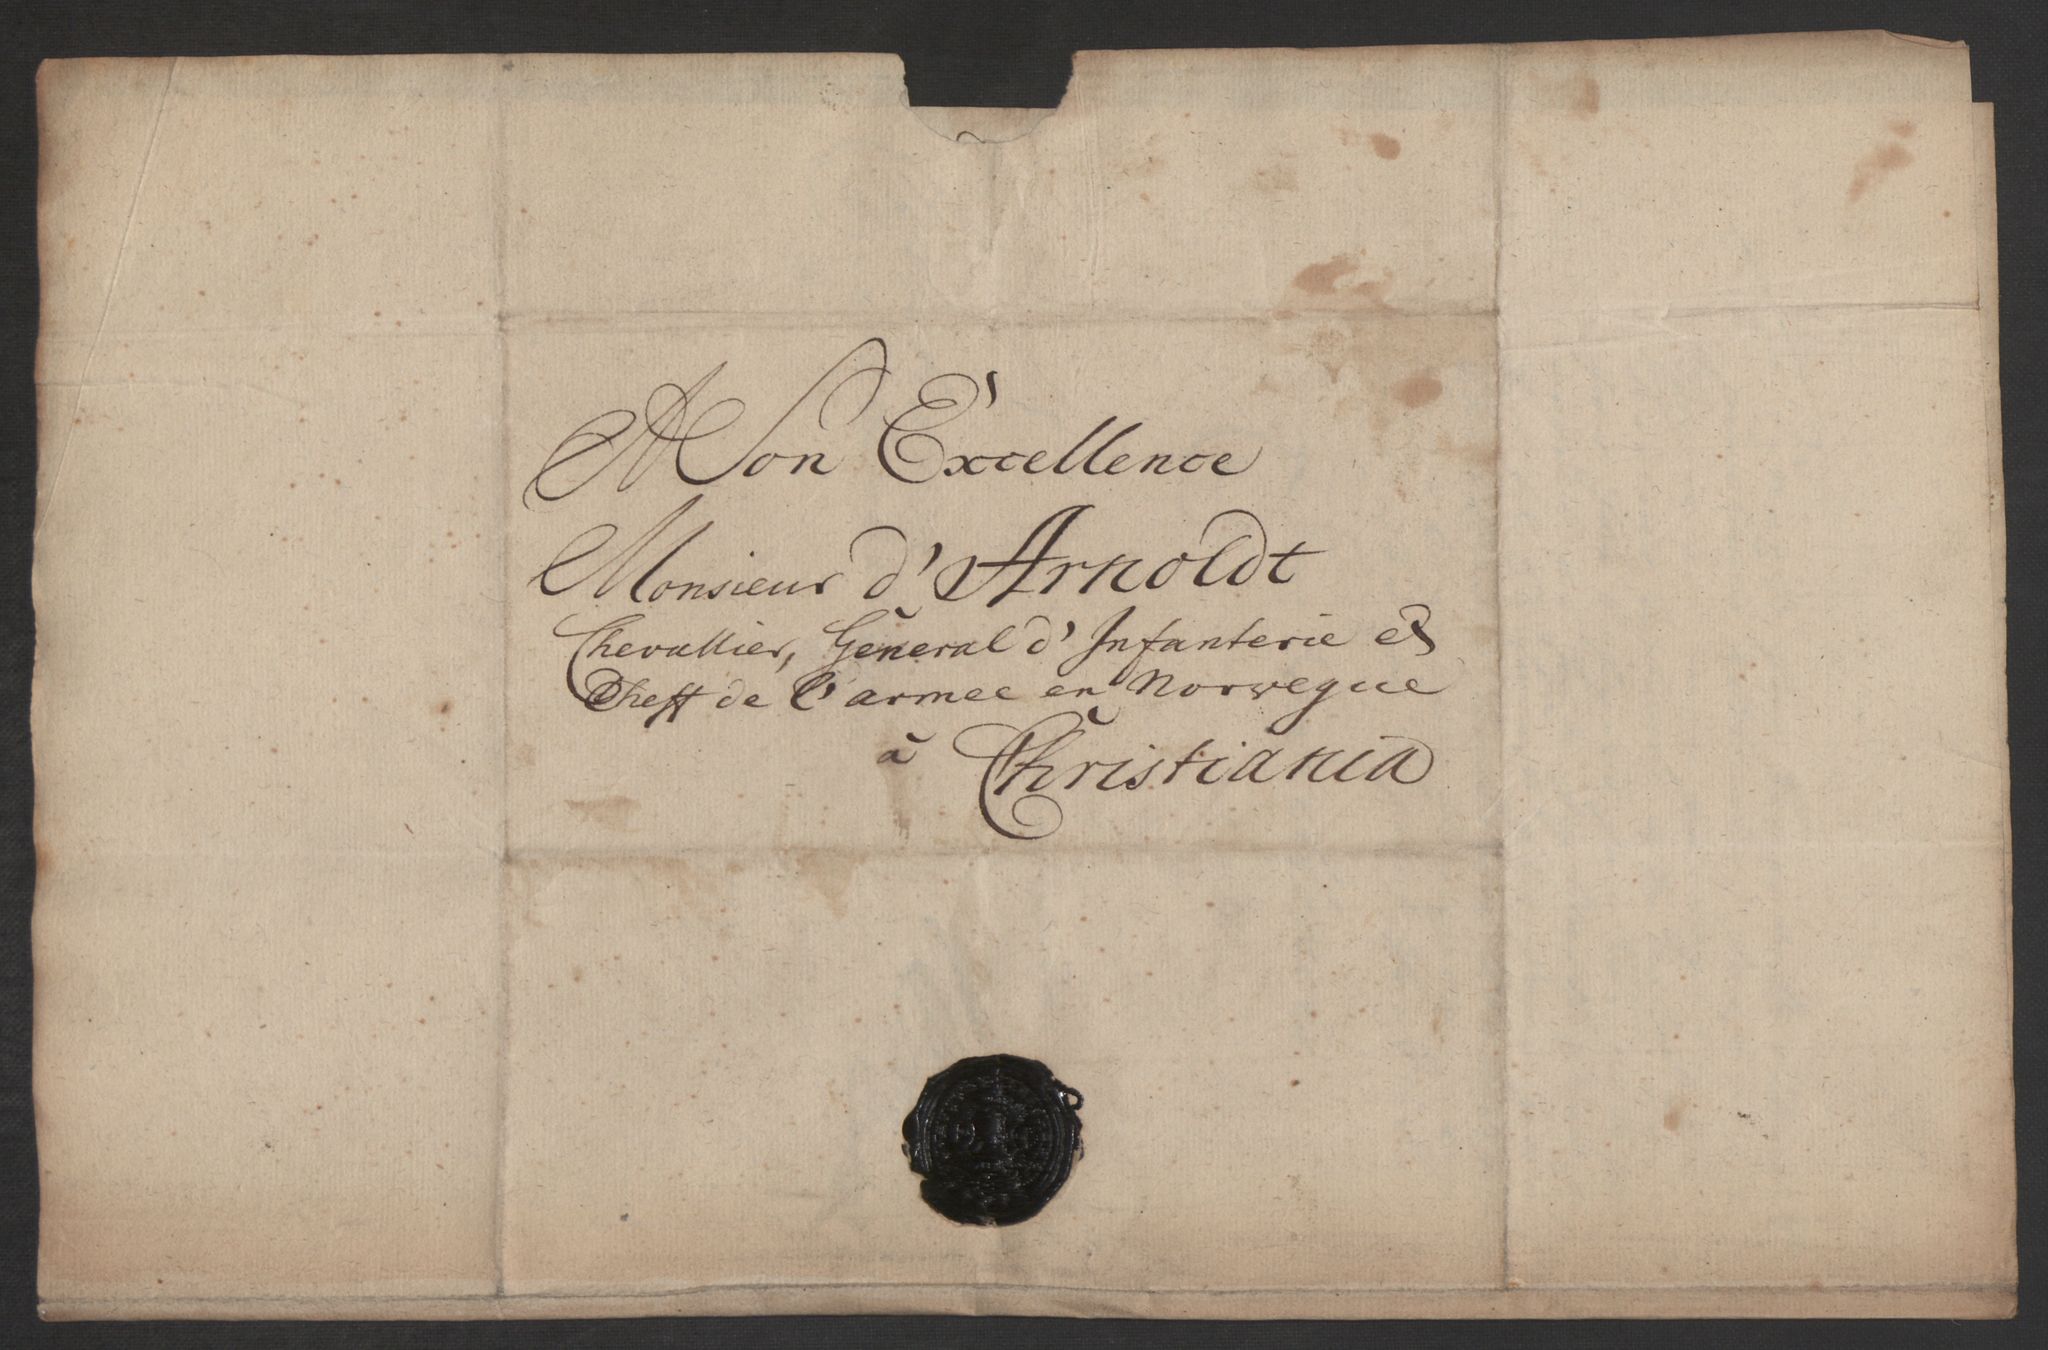 Mon Excellence
Monsieur d'Arnoldt
Chevallier, General d'Infanterie et
Cheff de l'armee en Norwegue
à Christiania